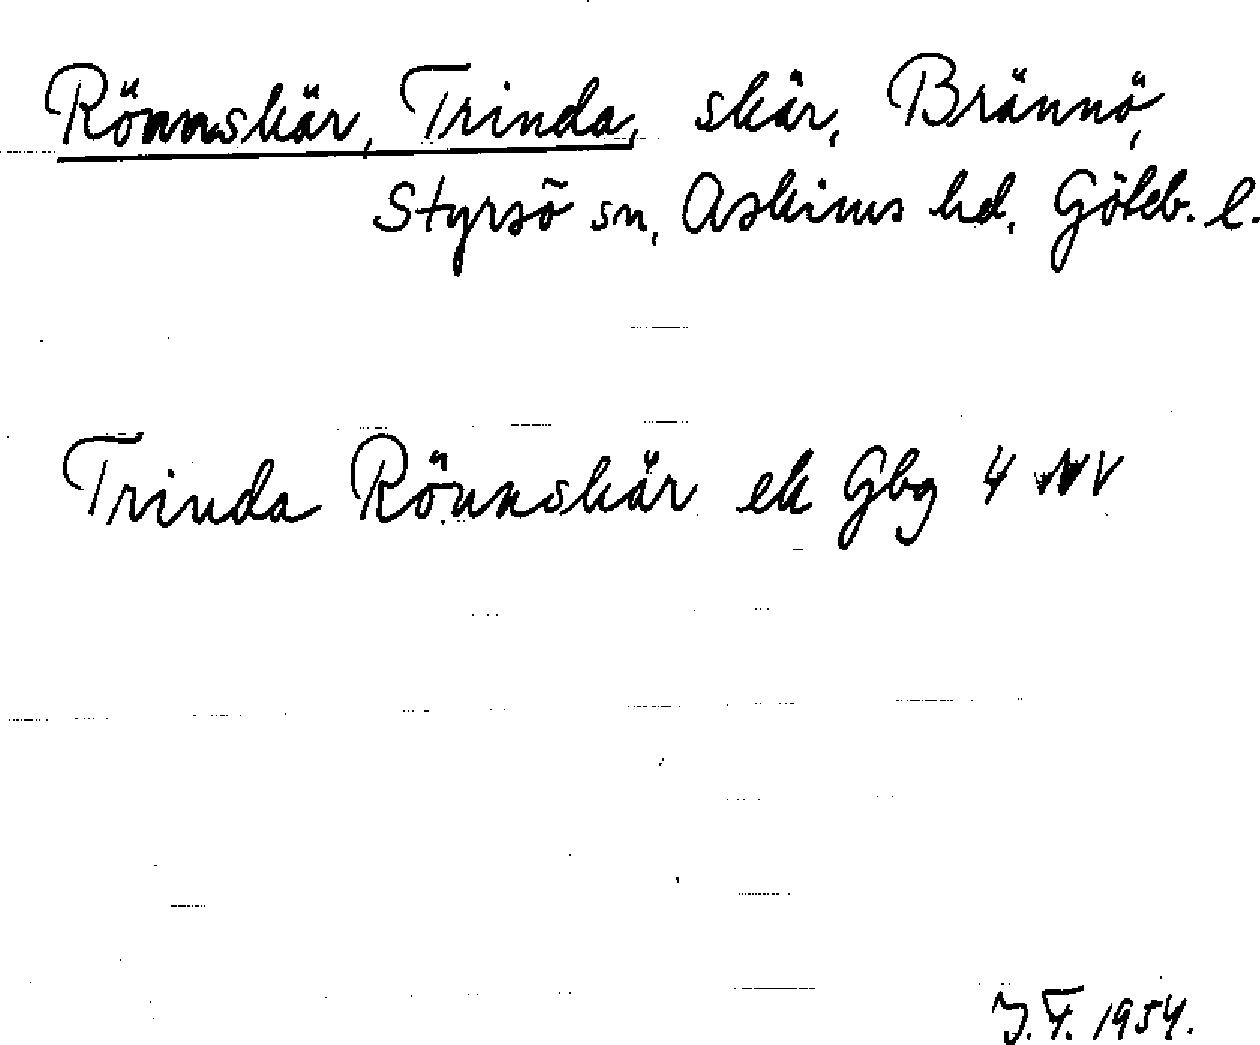 Rönnskär, Trinda, skär, Brännö,
Styrsö sn, Askims hd, Göteb. l.
Trinda Rönnskär ek Gbg 4 NV
J.F. 1954.